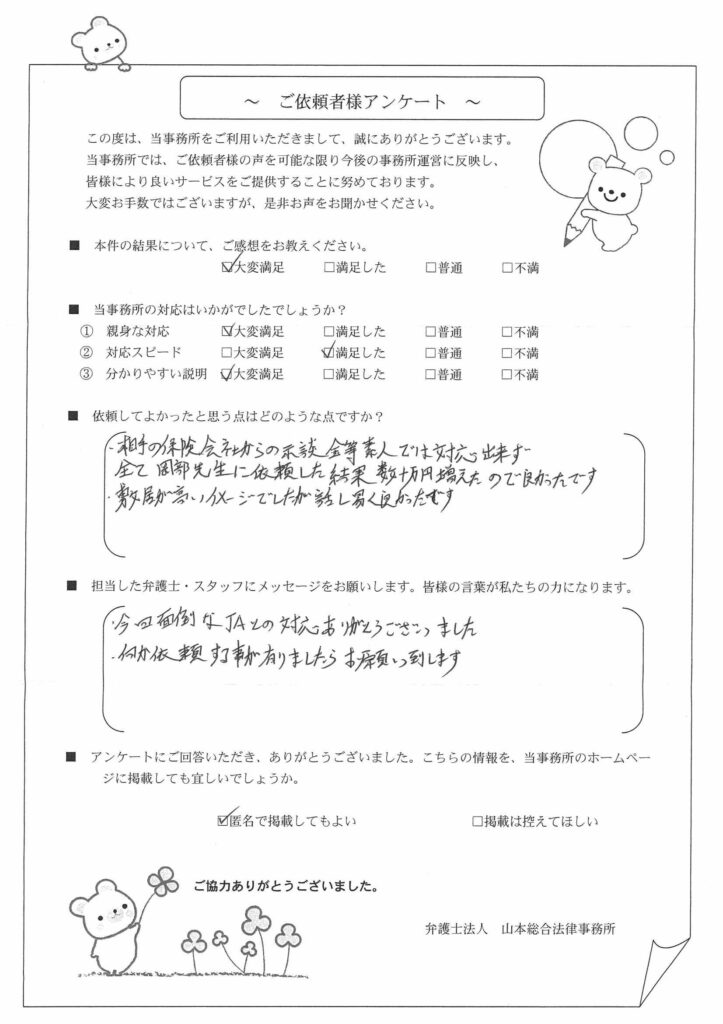 ～　ご依頼者様アンケート　～
この度は、当事務所をご利用いただきまして、誠にありがとうございます。
当事務所では、ご依頼者様の声を可能な限り今後の事務所運営に反映し、
皆様により良いサービスをご提供することに努めております。
大変お手数ではございますが、是非お声をお聞かせください。
■　本件の結果について、ご感想をお教えください。
☑大変満足　□満足した　□普通　□不満
■　当事務所の対応はいかがでしたでしょうか？
①　親身な対応　☑大変満足　□満足した　□普通　□不満
②　対応スピード　□大変満足　☑満足した　□普通　□不満
③　分かりやすい説明　☑大変満足　□満足した　□普通　□不満
■　依頼してよかったと思う点はどのような点ですか？
・相手の保険会社からの示談金等素人では対応出来ず
全て岡部先生に依頼した結果数十万円増えたので良かったです
・敷居が高いイメージでしたが話し易く良かったです
■　担当した弁護士・スタッフにメッセージをお願いします。皆様の言葉が私たちの力になります。
・今回面倒なJAとの対応ありがとうございました
・何か依頼する事が有りましたらお願い致します
■　アンケートにご回答いただき、ありがとうございました。こちらの情報を、当事務所のホームペー
ジに掲載しても宜しいでしょうか。
☑匿名で掲載してもよい　□掲載は控えてほしい
ご協力ありがとうございました。
弁護士法人　山本総合法律事務所